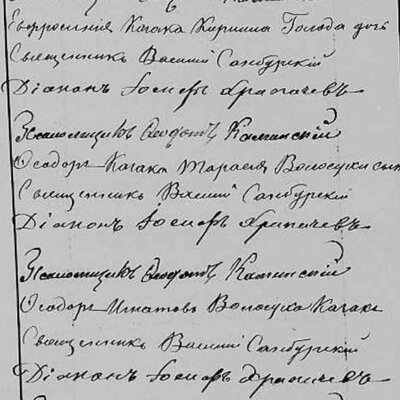 Евфросинія Казака Кирилла Голода дочь
Священникъ Василій Самбурскій
Діаконъ Іосифъ Храпачевъ
Псаломщикъ Ѳеодотъ Каминскій
Ѳеодоръ Казака Тарасія Волосухи сынъ
Священникъ Василій Самбурскій
Діаконъ Іосифъ Храпачевъ
Псаломщикъ Ѳеодотъ Каминскій
Ѳеодоръ Игнатовъ Волосуха Казакъ
Священникъ Василій Самбурскій
Діаконъ Іосифъ Храпачевъ